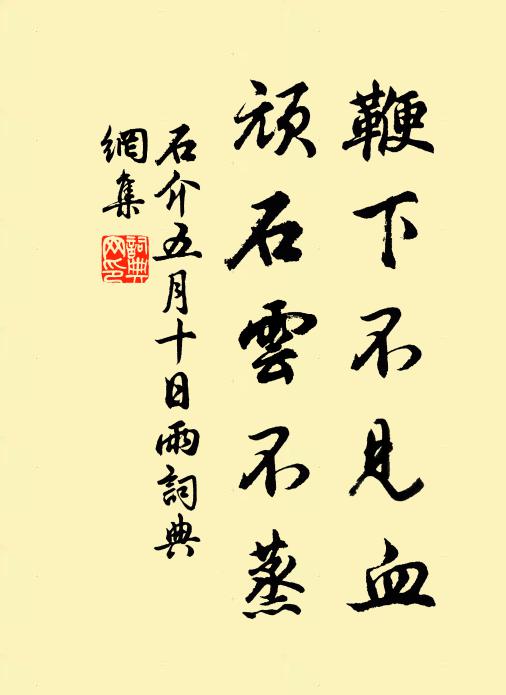 鞭下不見血
頑石雲不蒸
石介五月十日雨詞典
網集
詞典
网印